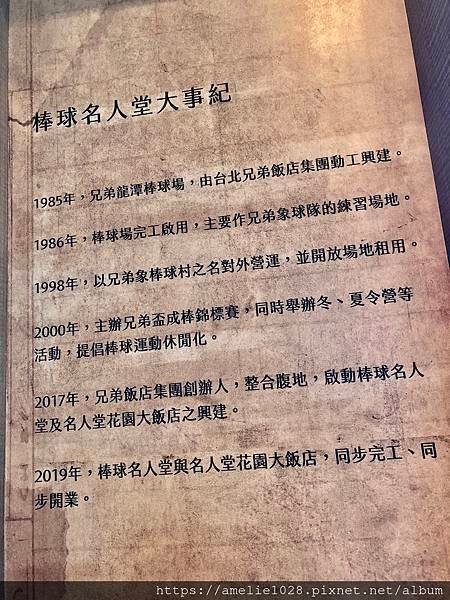 棒球名人堂大事紀
1985年，兄弟龍潭棒球場，由台北兄弟飯店集團動工興建。
1986年，棒球場完工啟用，主要作兄弟象球隊的練習場地。
1998年，以兄弟象棒球村之名對外營運，並開放場地租用。
2000年，主辦兄弟盃成棒錦標賽，同時舉辦冬、夏令營等
活動，提倡棒球運動休閒化。
2017年，兄弟飯店集團創辦人，整合腹地，啟動棒球名人
堂及名人堂花園大飯店之興建。
2019年，棒球名人堂與名人堂花園大飯店，同步完工、同
步開業。
https://amelie1028.pixnet.net/album